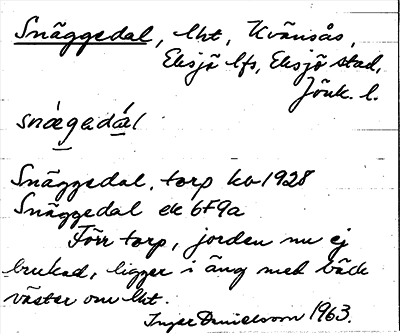 Snäggedal, lht, Kvänsås,
Eksjö lfs, Eksjö stad,
Jönk. l.
snǽgədál
Snäggedal, torp kb 1928
Snäggedal ek 6F9a
Förr torp, jorden nu ej
brukad, ligger i äng med bäck
väster om lht.
Inger Danielsson 1963.